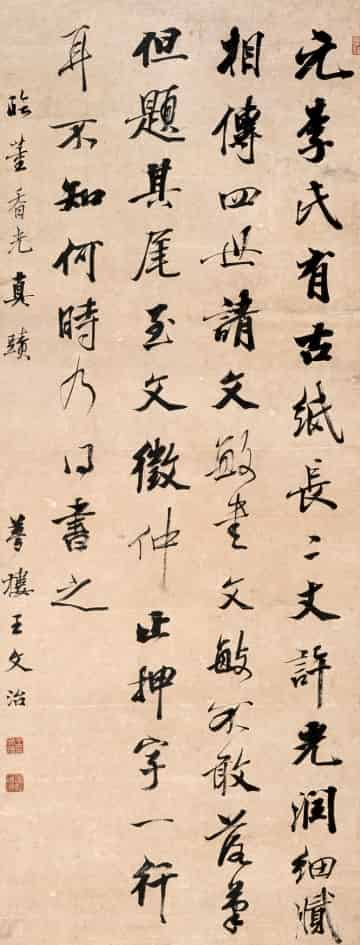 元李氏有古紙長二丈許光潤細膩
相傳四世請文敏書文敏不敢落筆
但題其尾至文徵仲止押字一行
耳不知何時乃得書之
臨董香光真蹟 夢樓王文治